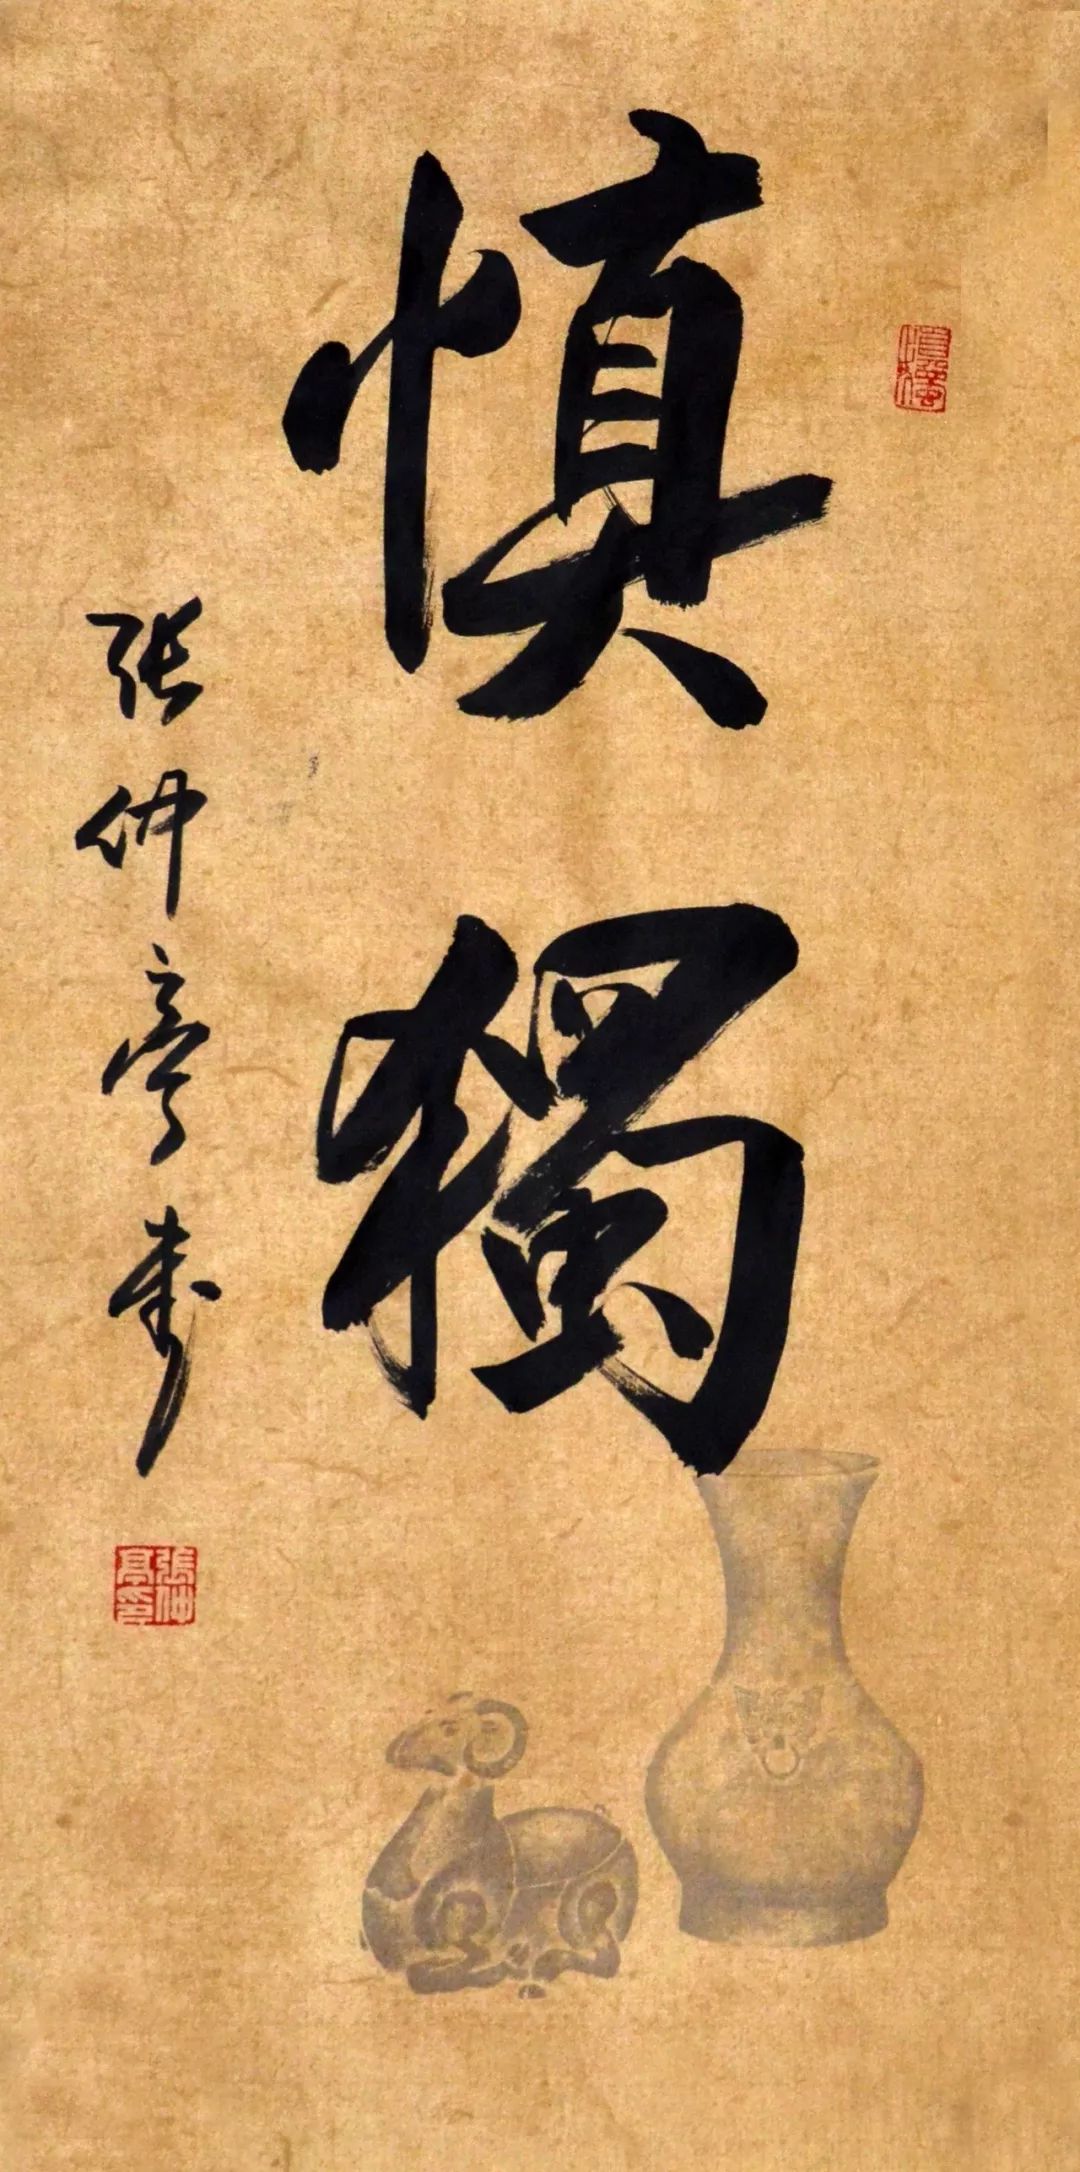 慎獨
张仲亭書
張仲亭印